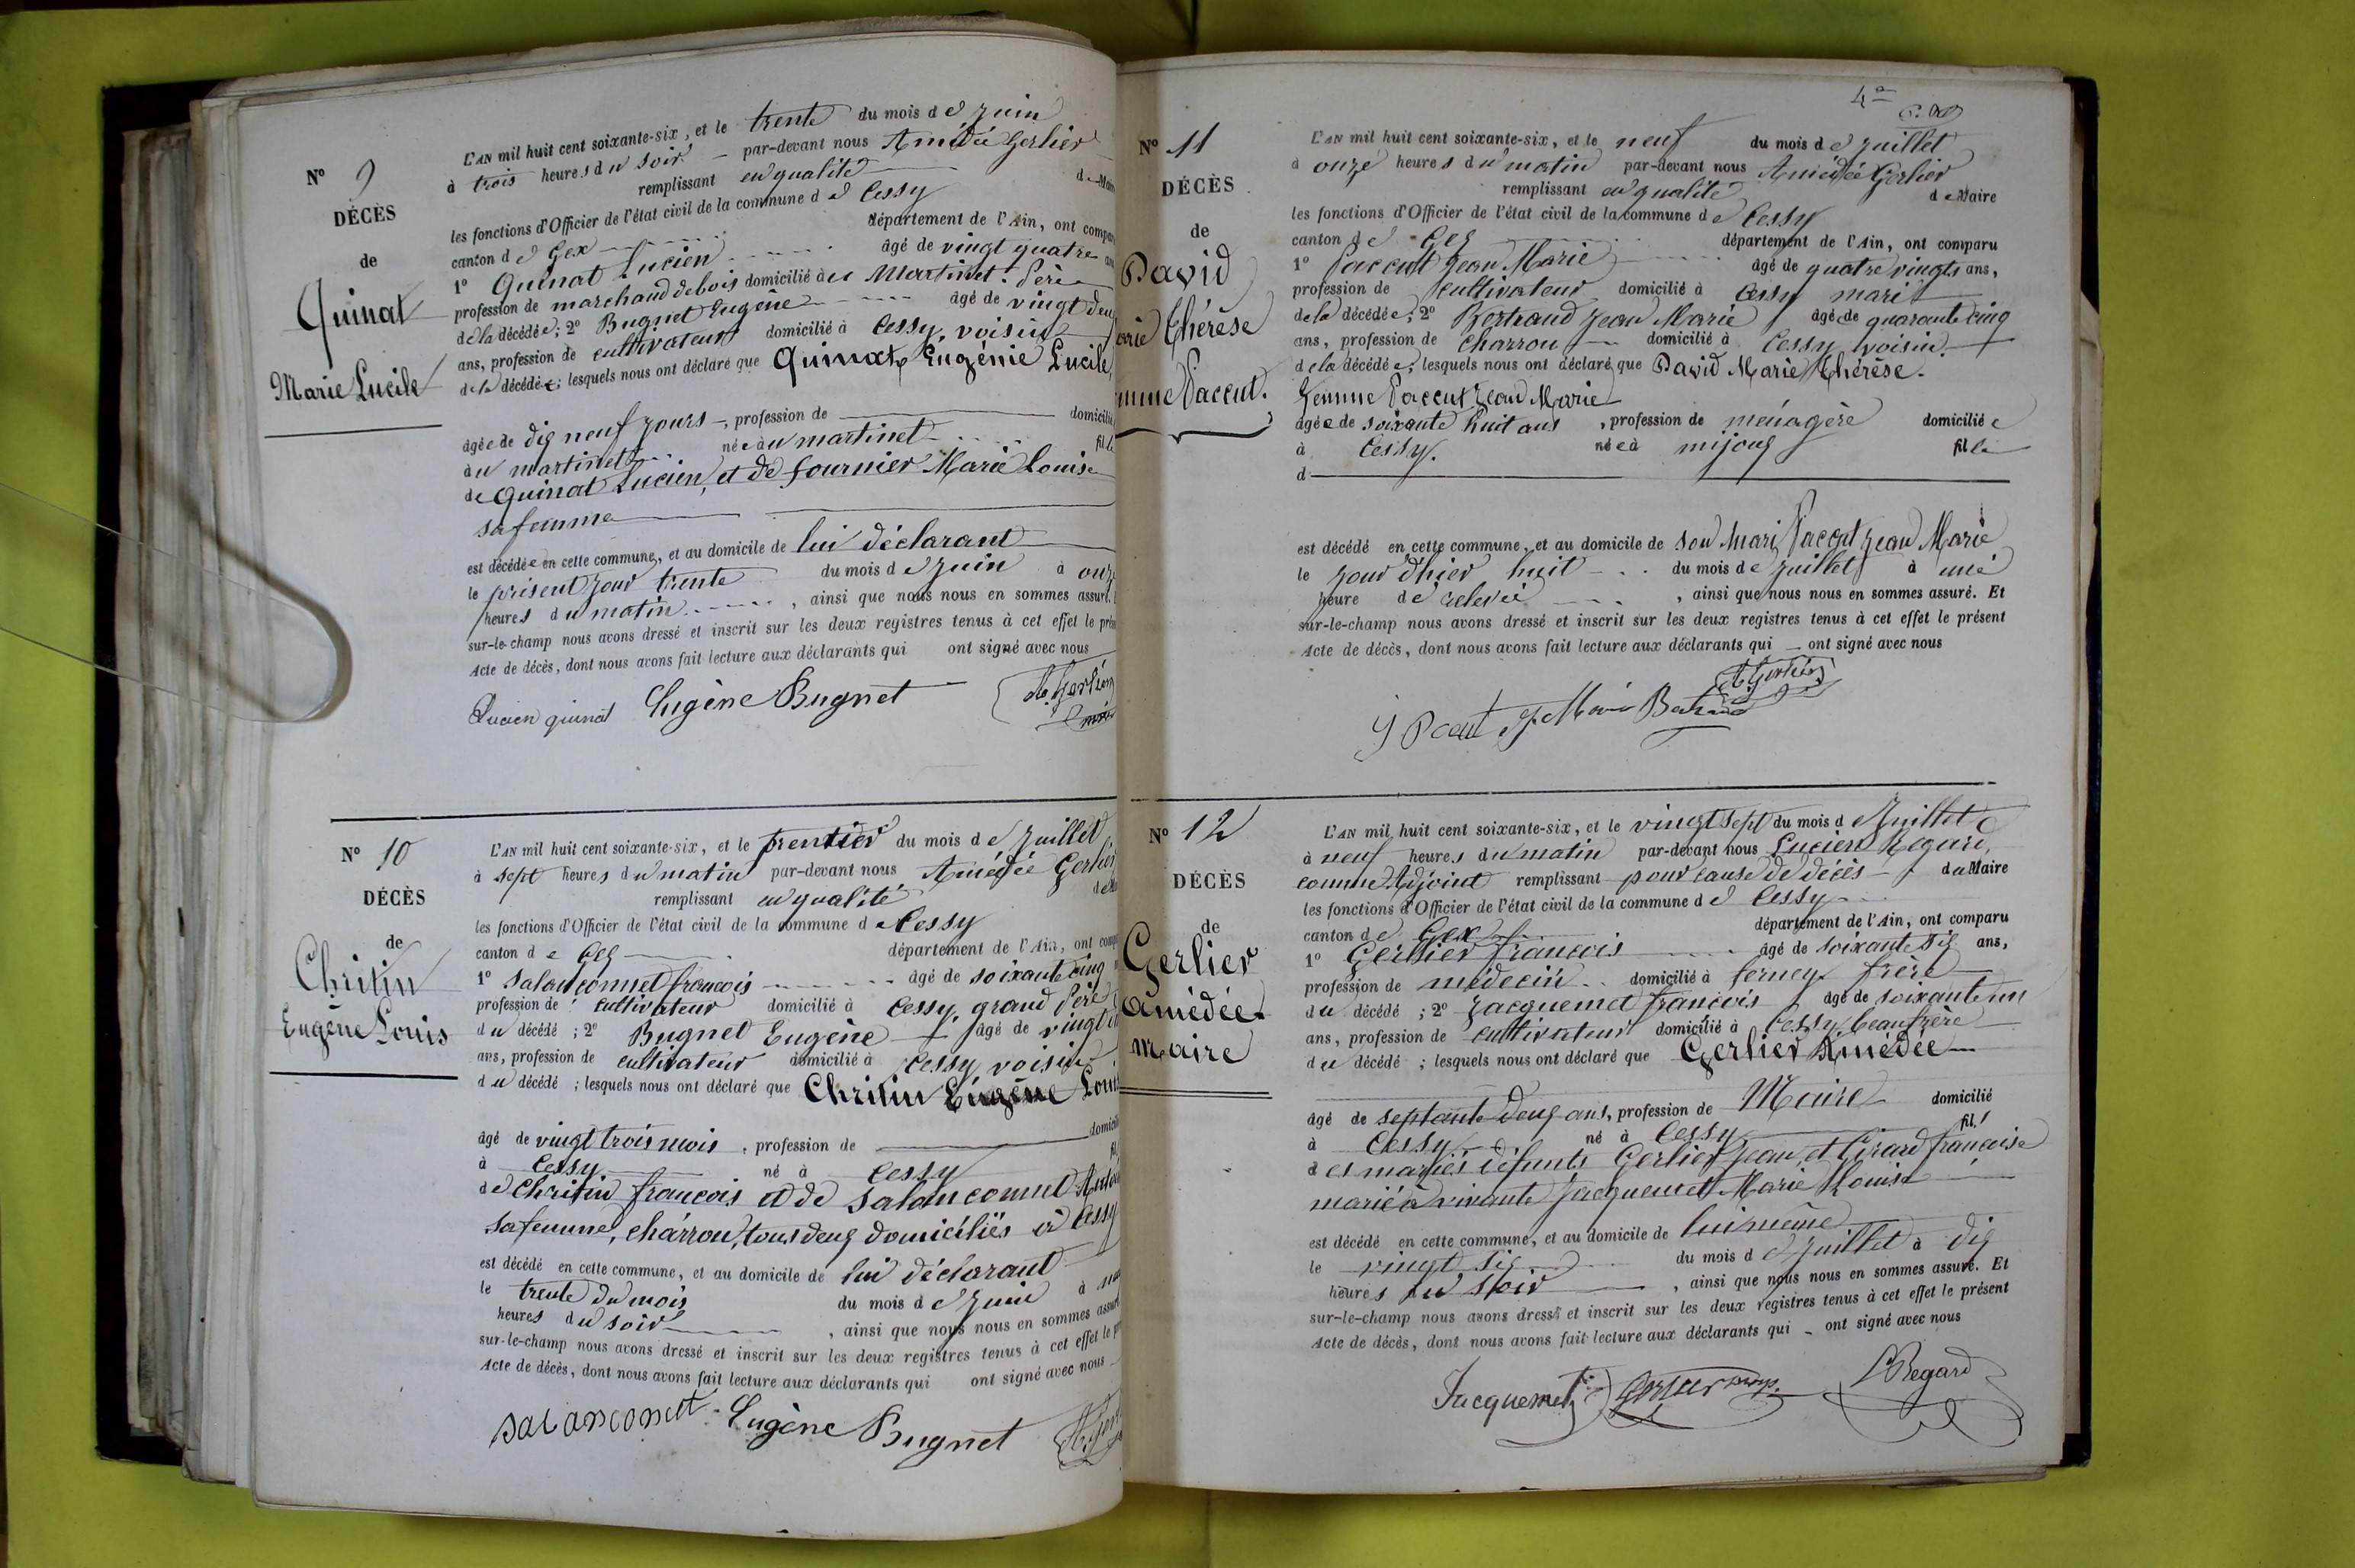 N° 9
DÉCÈS
de
Quinat
Marie Lucile
L'AN mil huit cent soixante-six, et le trente du mois de Juin
à trois heures du soir par-devant nous Amédée Gerlier
remplissant en qualité de Maire
les fonctions d'Officier de l'état civil de la commune de Cessy
canton de Gex département de l'Ain, ont comparu
1° Quinat Lucien âgé de vingt quatre ans
profession de marchand de bois domicilié à au Martinet. Père
de la décédée; 2° Bugnet Eugène âgé de vingt deux
ans, profession de cultivateur domicilié à Cessy, voisin
de la décédée; lesquels nous ont déclaré que Quinat, Eugénie Lucile,
âgée de dix neuf jours, profession de domicilié
au martinet née au martinet fille
de Quinat Lucien, et de Fournier Marie Louise
sa femme
est décédée en cette commune, et au domicile de lui déclarant
le présent jour trente du mois de Juin à onze
heures du matin, ainsi que nous nous en sommes assuré.
sur-le-champ nous avons dressé et inscrit sur les deux registres tenus à cet effet le présent
Acte de décès, dont nous avons fait lecture aux déclarants qui ont signé avec nous
Lucien quinat Eugène Bugnet A. Gerlier
N° 10
DÉCÈS
de
Christin
Eugène Louis
L'AN mil huit cent soixante-six, et le premier du mois de Juillet
à sept heures du matin par-devant nous Amédée Gerlier
remplissant en qualité de Maire
les fonctions d'Officier de l'état civil de la commune de Cessy
canton de Gex département de l'Ain, ont comparu
1° Salanconnet françois âgé de soixante cinq
profession de cultivateur domicilié à Cessy, grand Père
du décédé; 2° Bugnet Eugène âgé de vingt
ans, profession de cultivateur domicilié à Cessy voisin
du décédé; lesquels nous ont déclaré que Christin Eugène Louis
âgé de vingt trois mois, profession de domicilié
à Cessy né à Cessy
de Christin françois et de Salanconnet
sa femme, charron, tous deux domiciliés à Cessy
est décédé en cette commune, et au domicile de lui déclarant
le trente du mois du mois de Juin à
heures du soir, ainsi que nous nous en sommes assuré
sur-le-champ nous avons dressé et inscrit sur les deux registres tenus à cet effet le
Acte de décès, dont nous avons fait lecture aux déclarants qui ont signé avec nous
salanconett Eugène Bugnet
4e
N° 11
DÉCÈS
de
David
Marie Thérèse
femme Paccut.
L'AN mil huit cent soixante-six, et le neuf du mois de Juillet
à onze heures du matin par-devant nous Amédée Gerlier
remplissant en qualité de Maire
les fonctions d'Officier de l'état civil de la commune de Cessy
canton de Gex département de l'Ain, ont comparu
1° Paccut Jean Marie âgé de quatre vingts ans,
profession de cultivateur domicilié à Cessy mari
de la décédée; 2° Bertrand Jean Marie âgé de quarante cinq
ans, profession de charron domicilié à Cessy voisin.
de la décédée; lesquels nous ont déclaré que David Marie Thérèse.
femme Paccut Jean Marie
âgée de soixante huit ans, profession de ménagère domiciliée
à Cessy. née à mijoux fille
d
est décédé en cette commune, et au domicile de son Mari Paccut Jean Marie
le jour d'hier huit du mois de Juillet à une
heure de relevée, ainsi que nous nous en sommes assuré. Et
sur-le-champ nous avons dressé et inscrit sur les deux registres tenus à cet effet le présent
Acte de décès, dont nous avons fait lecture aux déclarants qui ont signé avec nous
A Gerlier
J. Marie Bertrand
N° 12
DÉCÈS
de
Gerlier
Amédée
Maire
L'AN mil huit cent soixante-six, et le vingt sept du mois de Juillet
à neuf heures du matin par-devant nous Lucien Regard,
comme Adjoint remplissant pour cause de décès du Maire
les fonctions d'Officier de l'état civil de la commune de Cessy
canton de Gex département de l'Ain, ont comparu
1° Gerlier françois âgé de soixante six ans,
profession de médecin domicilié à ferney frère
du décédé; 2° Jacquemet françois âgé de soixante un
ans, profession de cultivateur domicilié à Cessy beau frère
du décédé; lesquels nous ont déclaré que Gerlier Amédée
âgé de septante deux ans, profession de Maire domicilié
à Cessy né à Cessy fils
des mariés défunts Gerlier Jean et Girard françoise
marié à vivante Jacquemet Marie Louise
est décédé en cette commune, et au domicile de lui même
le vingt six du mois de Juillet à dix
heures du Soir, ainsi que nous nous en sommes assuré. Et
sur-le-champ nous avons dressé et inscrit sur les deux registres tenus à cet effet le présent
Acte de décès, dont nous avons fait lecture aux déclarants qui ont signé avec nous
Jacquemet Gerlier LRegard